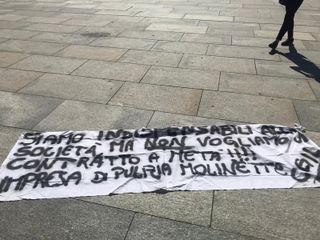 SIAMO INDISPENSABILI ALLA
SOCIETÀ MA NON VOGLIAMO UN
CONTRATTO A METÀ!!!
IMPRESA DI PULIZIA MOLINETTE